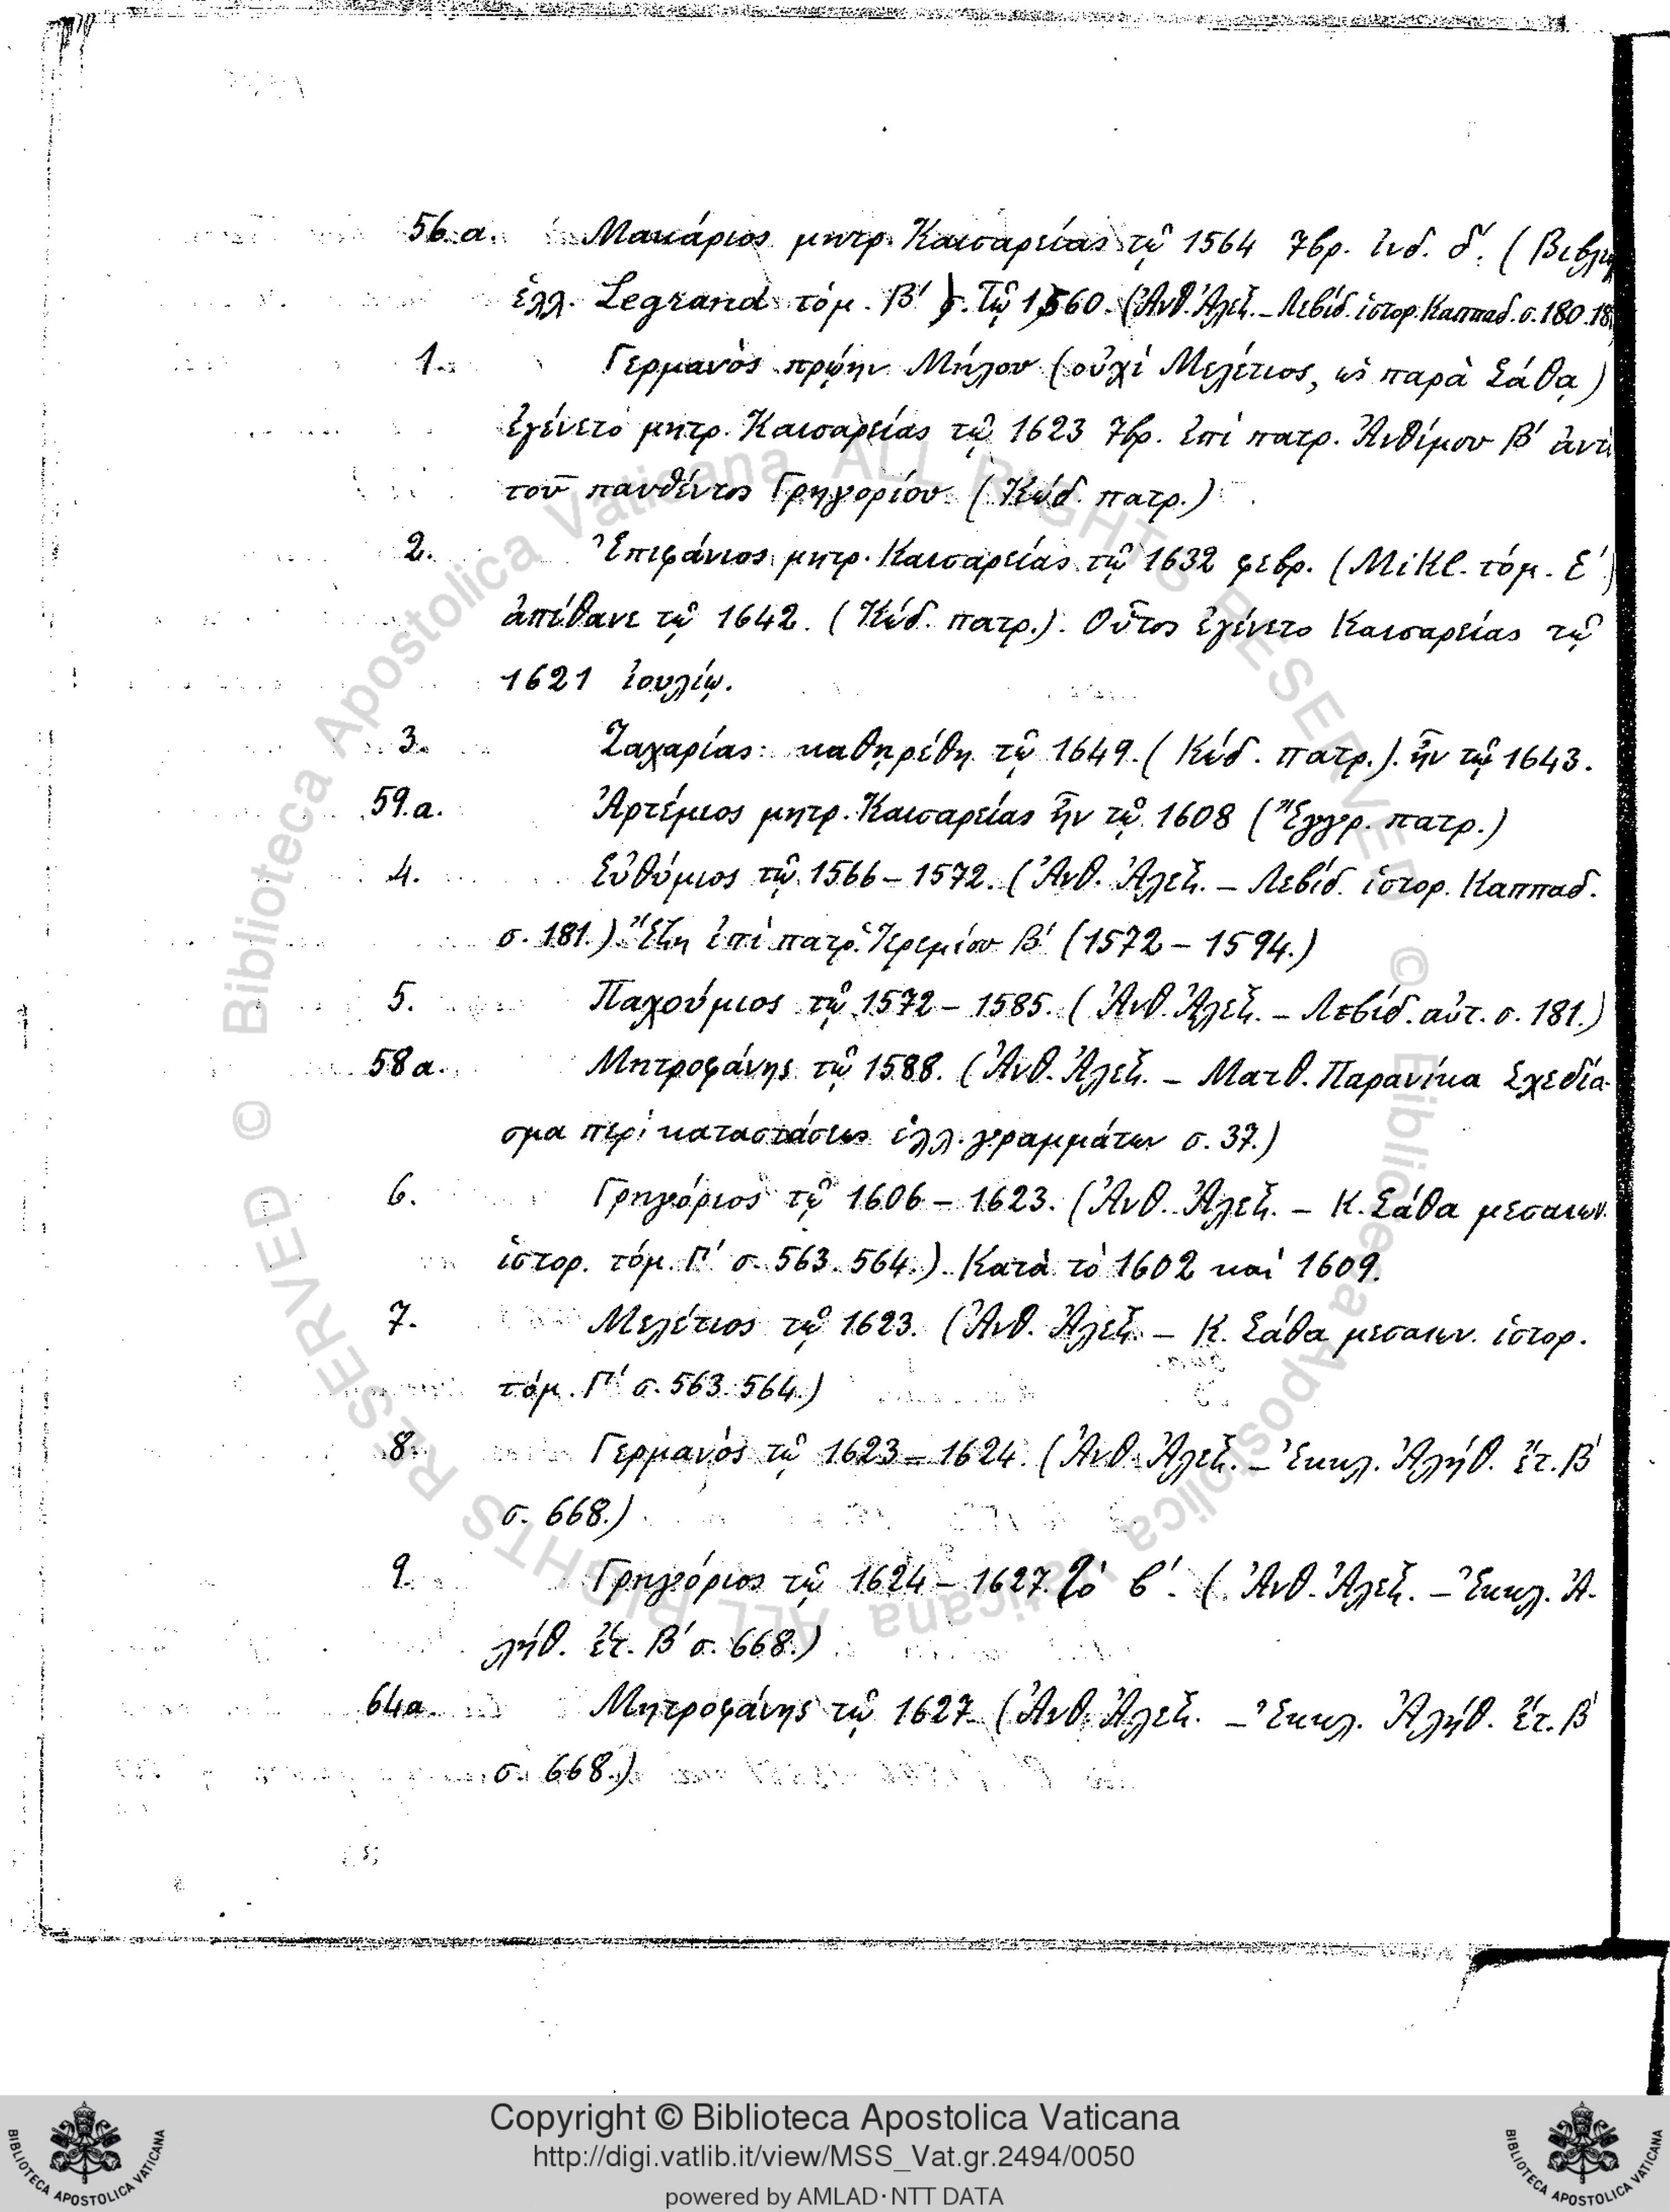 56.α. Μακάριος μητρ. Καισαρείας τῷ 1564 7βρ. ἰνδ. δ΄. (Βιβλ
ἑλλ. Legrand τόμ. Β΄). Τῷ 1560. (Ἀνθ. Ἀλεξ. – Λεβίδ. ἱστορ. Καππαδ. σ. 180.18
1. Γερμανὸς πρῴην Μήλου (οὐχὶ Μελέτιος, ὡς παρὰ Σάθᾳ)
ἐγένετο μητρ. Καισαρείας τῷ 1623 7βρ. ἐπὶ πατρ. Ἀνθίμου Β΄ ἀντὶ
τοῦ παυθέντος Γρηγορίου. (Κώδ. πατρ.)
2. Ἐπιφάνιος μητρ. Καισαρείας τῷ 1632 φεβρ. (Mikl. τόμ. Ε΄)
ἀπέθανε τῷ 1642. (Κώδ. πατρ.). Οὗτος ἐγένετο Καισαρείας τῷ
1621 ἰουλίῳ.
3. Ζαχαρίας: καθῃρέθη τῷ 1649. (Κώδ. πατρ.). ἦν τῷ 1643.
59.α. Ἀρτέμιος μητρ. Καισαρείας ἦν τῷ 1608 (Ἔγγρ. πατρ.)
4. Εὐθύμιος τῷ 1566 – 1572. (Ἀνθ. Ἀλεξ. – Λεβίδ. ἱστορ. Καππαδ.
σ. 181.) Ἔζη ἐπὶ πατρ. Ἱερεμίου Β΄ (1572 – 1594.)
5. Παχούμιος τῷ 1572 – 1585. (Ἀνθ. Ἀλεξ. – Λεβίδ. αὐτ. σ. 181.)
58α. Μητροφάνης τῷ 1588. (Ἀνθ. Ἀλεξ. – Ματθ. Παρανίκα Σχεδία-
σμα περὶ καταστάσεως ἑλλ. γραμμάτων σ. 37.)
6. Γρηγόριος τῷ 1606 – 1623. (Ἀνθ. Ἀλεξ. – Κ. Σάθα μεσαιων.
ἱστορ. τόμ. Γ΄ σ. 563. 564.) Κατὰ τὸ 1602 καὶ 1609.
7. Μελέτιος τῷ 1623. (Ἀνθ. Ἀλεξ. – Κ. Σάθα μεσαιων. ἱστορ.
τόμ. Γ΄ σ. 563. 564.)
8. Γερμανὸς τῷ 1623 – 1624. (Ἀνθ. Ἀλεξ. – Ἐκκλ. Ἀλήθ. ἔτ. Β΄
σ. 668.)
9. Γρηγόριος τῷ 1624 – 1627. τὸ β΄. (Ἀνθ. Ἀλεξ. – Ἐκκλ. Ἀ-
λήθ. ἔτ. Β΄ σ. 668.)
64α Μητροφάνης τῷ 1627 (Ἀνθ. Ἀλεξ. – Ἐκκλ. Ἀλήθ. ἔτ. Β΄
σ. 668.)
© Biblioteca Apostolica Vaticana ALL RIGHTS RESERVED © Biblioteca Apostolica Vaticana ALL RIGHTS RESERVED
Copyright © Biblioteca Apostolica Vaticana
http://digi.vatlib.it/view/MSS_Vat.gr.2494/0050
powered by AMLAD·NTT DATA
BIBLIOTECA APOSTOLICA VATICANA
BIBLIOTECA APOSTOLICA VATICANA